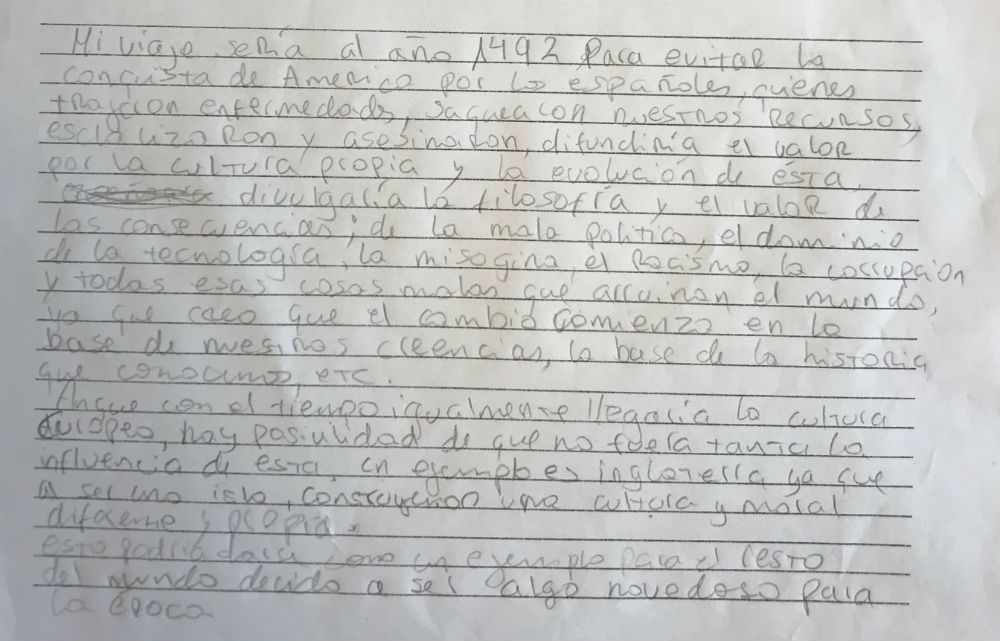 Mi viaje sería al año 1492 para evitar la
conquista de America por lo españoles, quienes
trajeron enfermedads, saquearon nuestros recursos,
esclavizaron y asesinaron, difundiría el valor
por la cultura propia y la evolución de ésta,
divulgaría la filosofía y el valor de
las consecuencias; de la mala politica, el dominio
de la tecnología, la misogina, el racismo, la corrupción
y todas esas cosas malas que arruinan el mundo,
ya que creo que el cambio comienza en la
base de nuestros creencias, la base de la historia
que conocimos, etc.
Anque con el tiempo igualmente llegaría la cultura
europea, hay posiulidad de que no fuera tanta la
influencia de esta, un ejemplo es inglaterra ya que
al ser una isla, construyeron una cultura y moral
diferente y propia.
esto podria daria como un ejemplo para el resto
del mundo devido a ser algo novedoso para
la época.